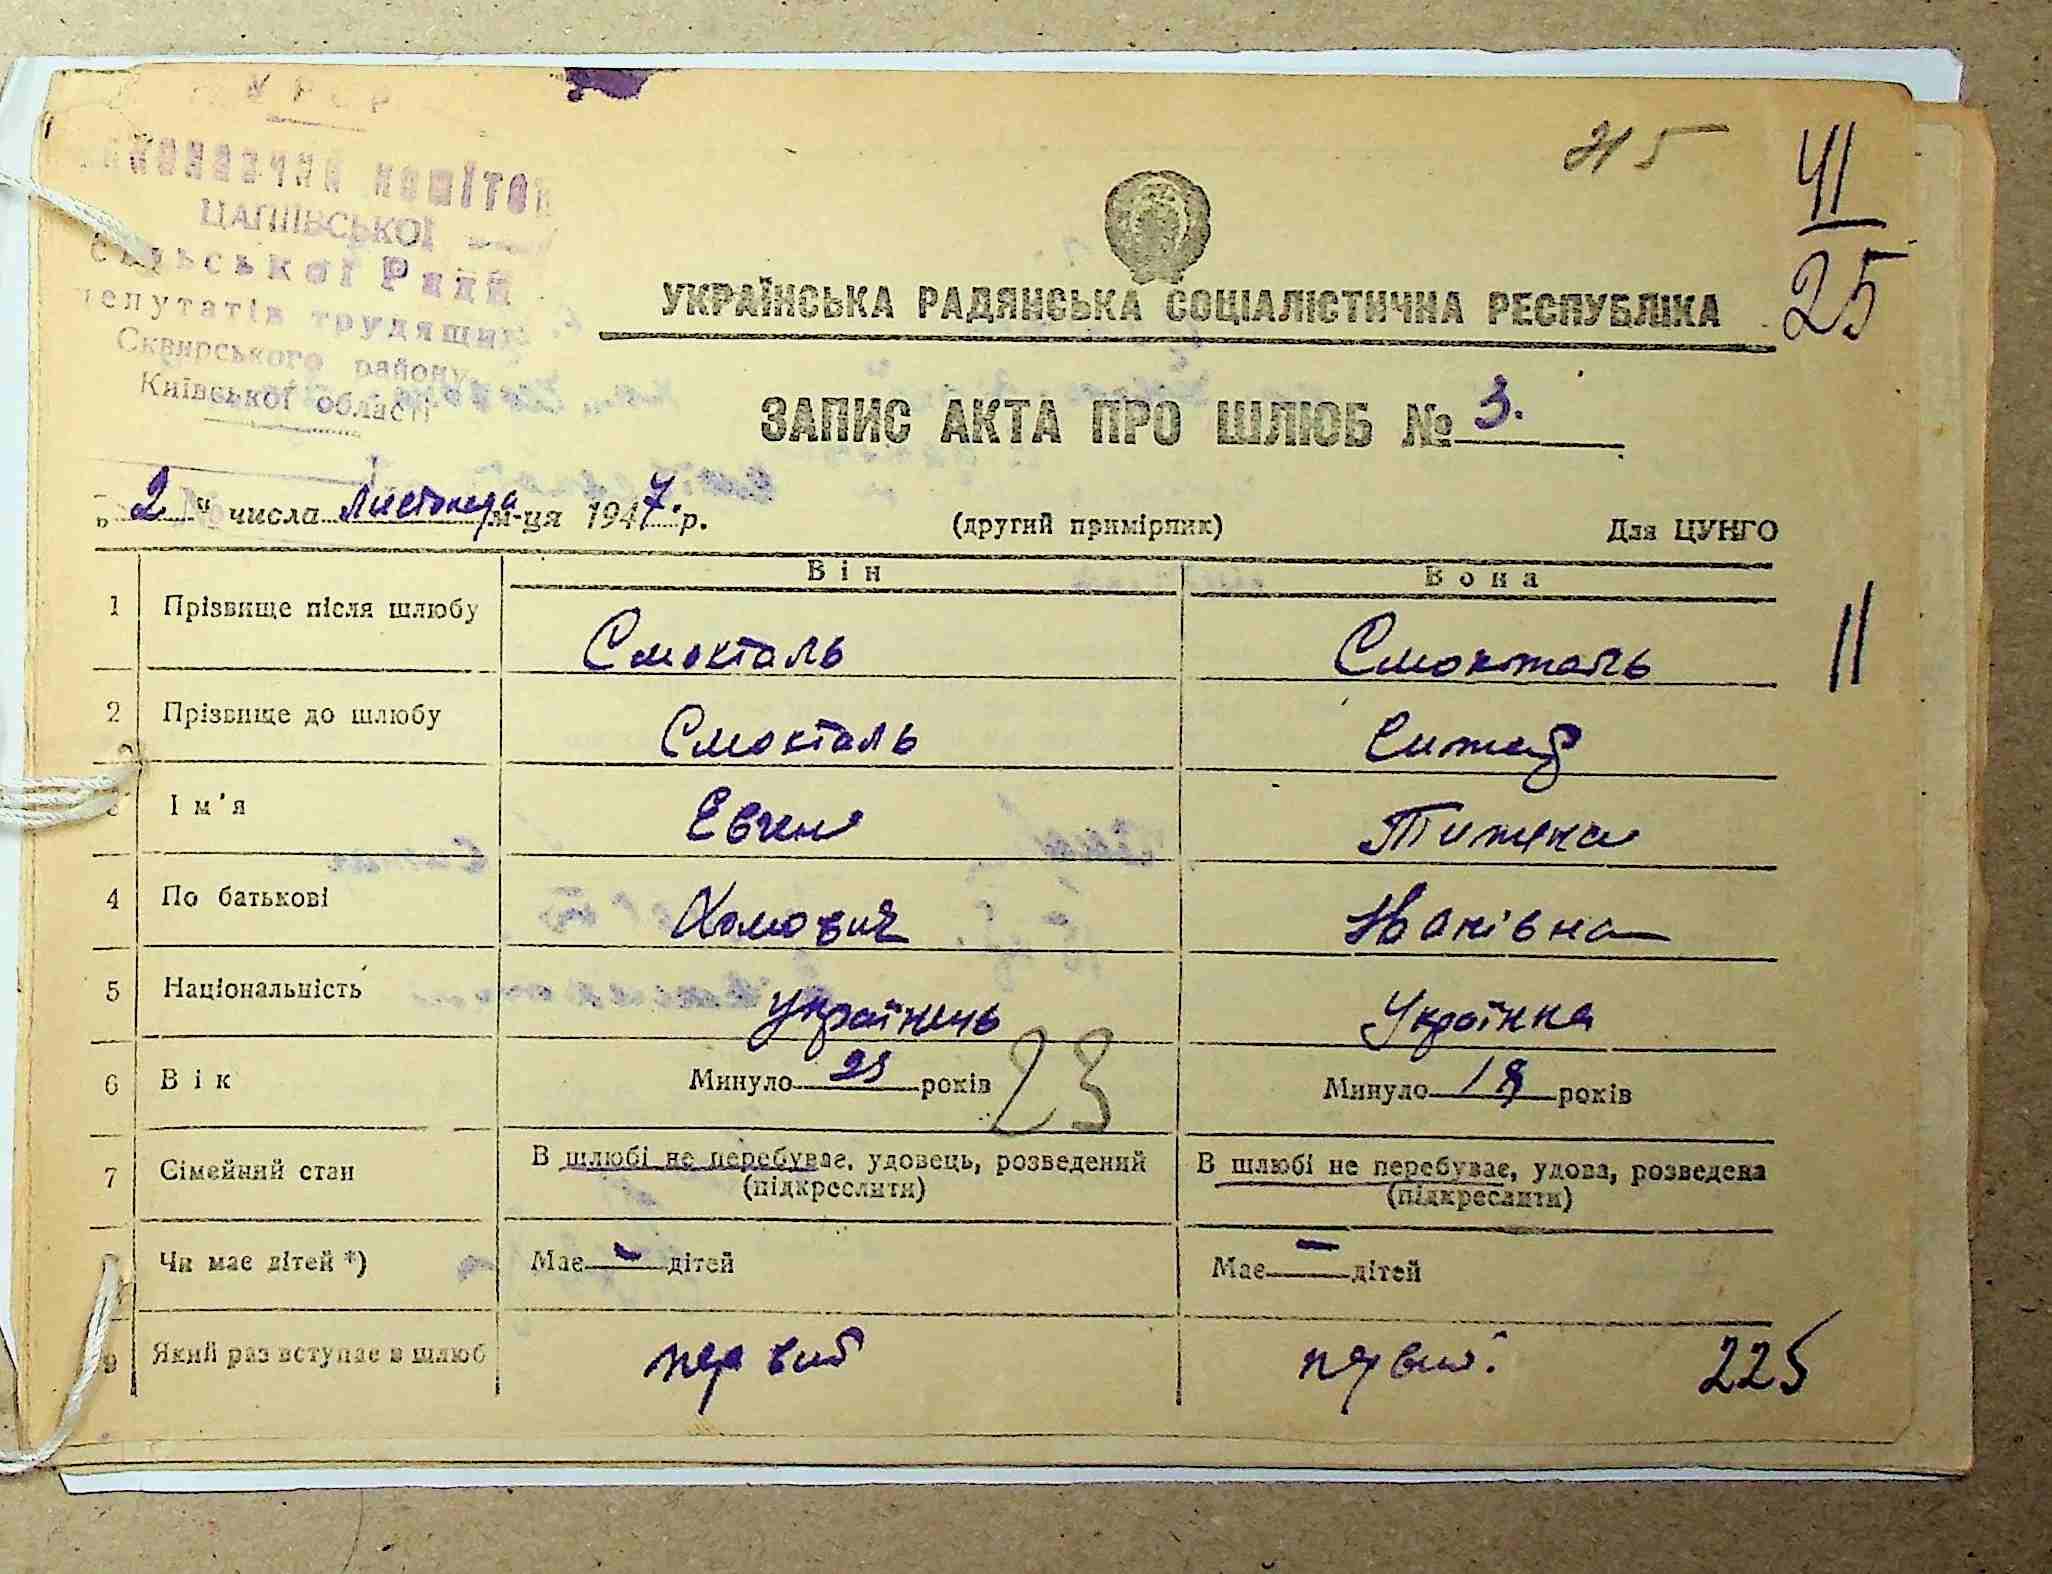 УРСР
Виконавчий комітет
ЦАПІЇВСЬКОЇ
сільської Ради
депутатів трудящих
Сквирського району
Київської області
41
25
УКРАЇНСЬКА РАДЯНСЬКА СОЦІАЛІСТИЧНА РЕСПУБЛІКА
ЗАПИС АКТА ПРО ШЛЮБ № 3.
„ 2 “ числа Листопада м-ця 1947.р. (другий примірник) Для ЦУНГО
Він Вона
1 Прізвище після шлюбу Смокталь Смокталь
2 Прізвище до шлюбу Смокталь
3 Ім'я Евген
4 По батькові Хомович Іванівна
5 Національність Українець Українка
6 Вік Минуло 23 років 23 Минуло 18 років
7 Сімейний стан В шлюбі не перебуває, удовець, розведений (підкреслити) В шлюбі не перебуває, удова, розведена (підкреслити)
Чи має дітей *) Має — дітей Має — дітей
9 Який раз вступає в шлюб первий первий.
225